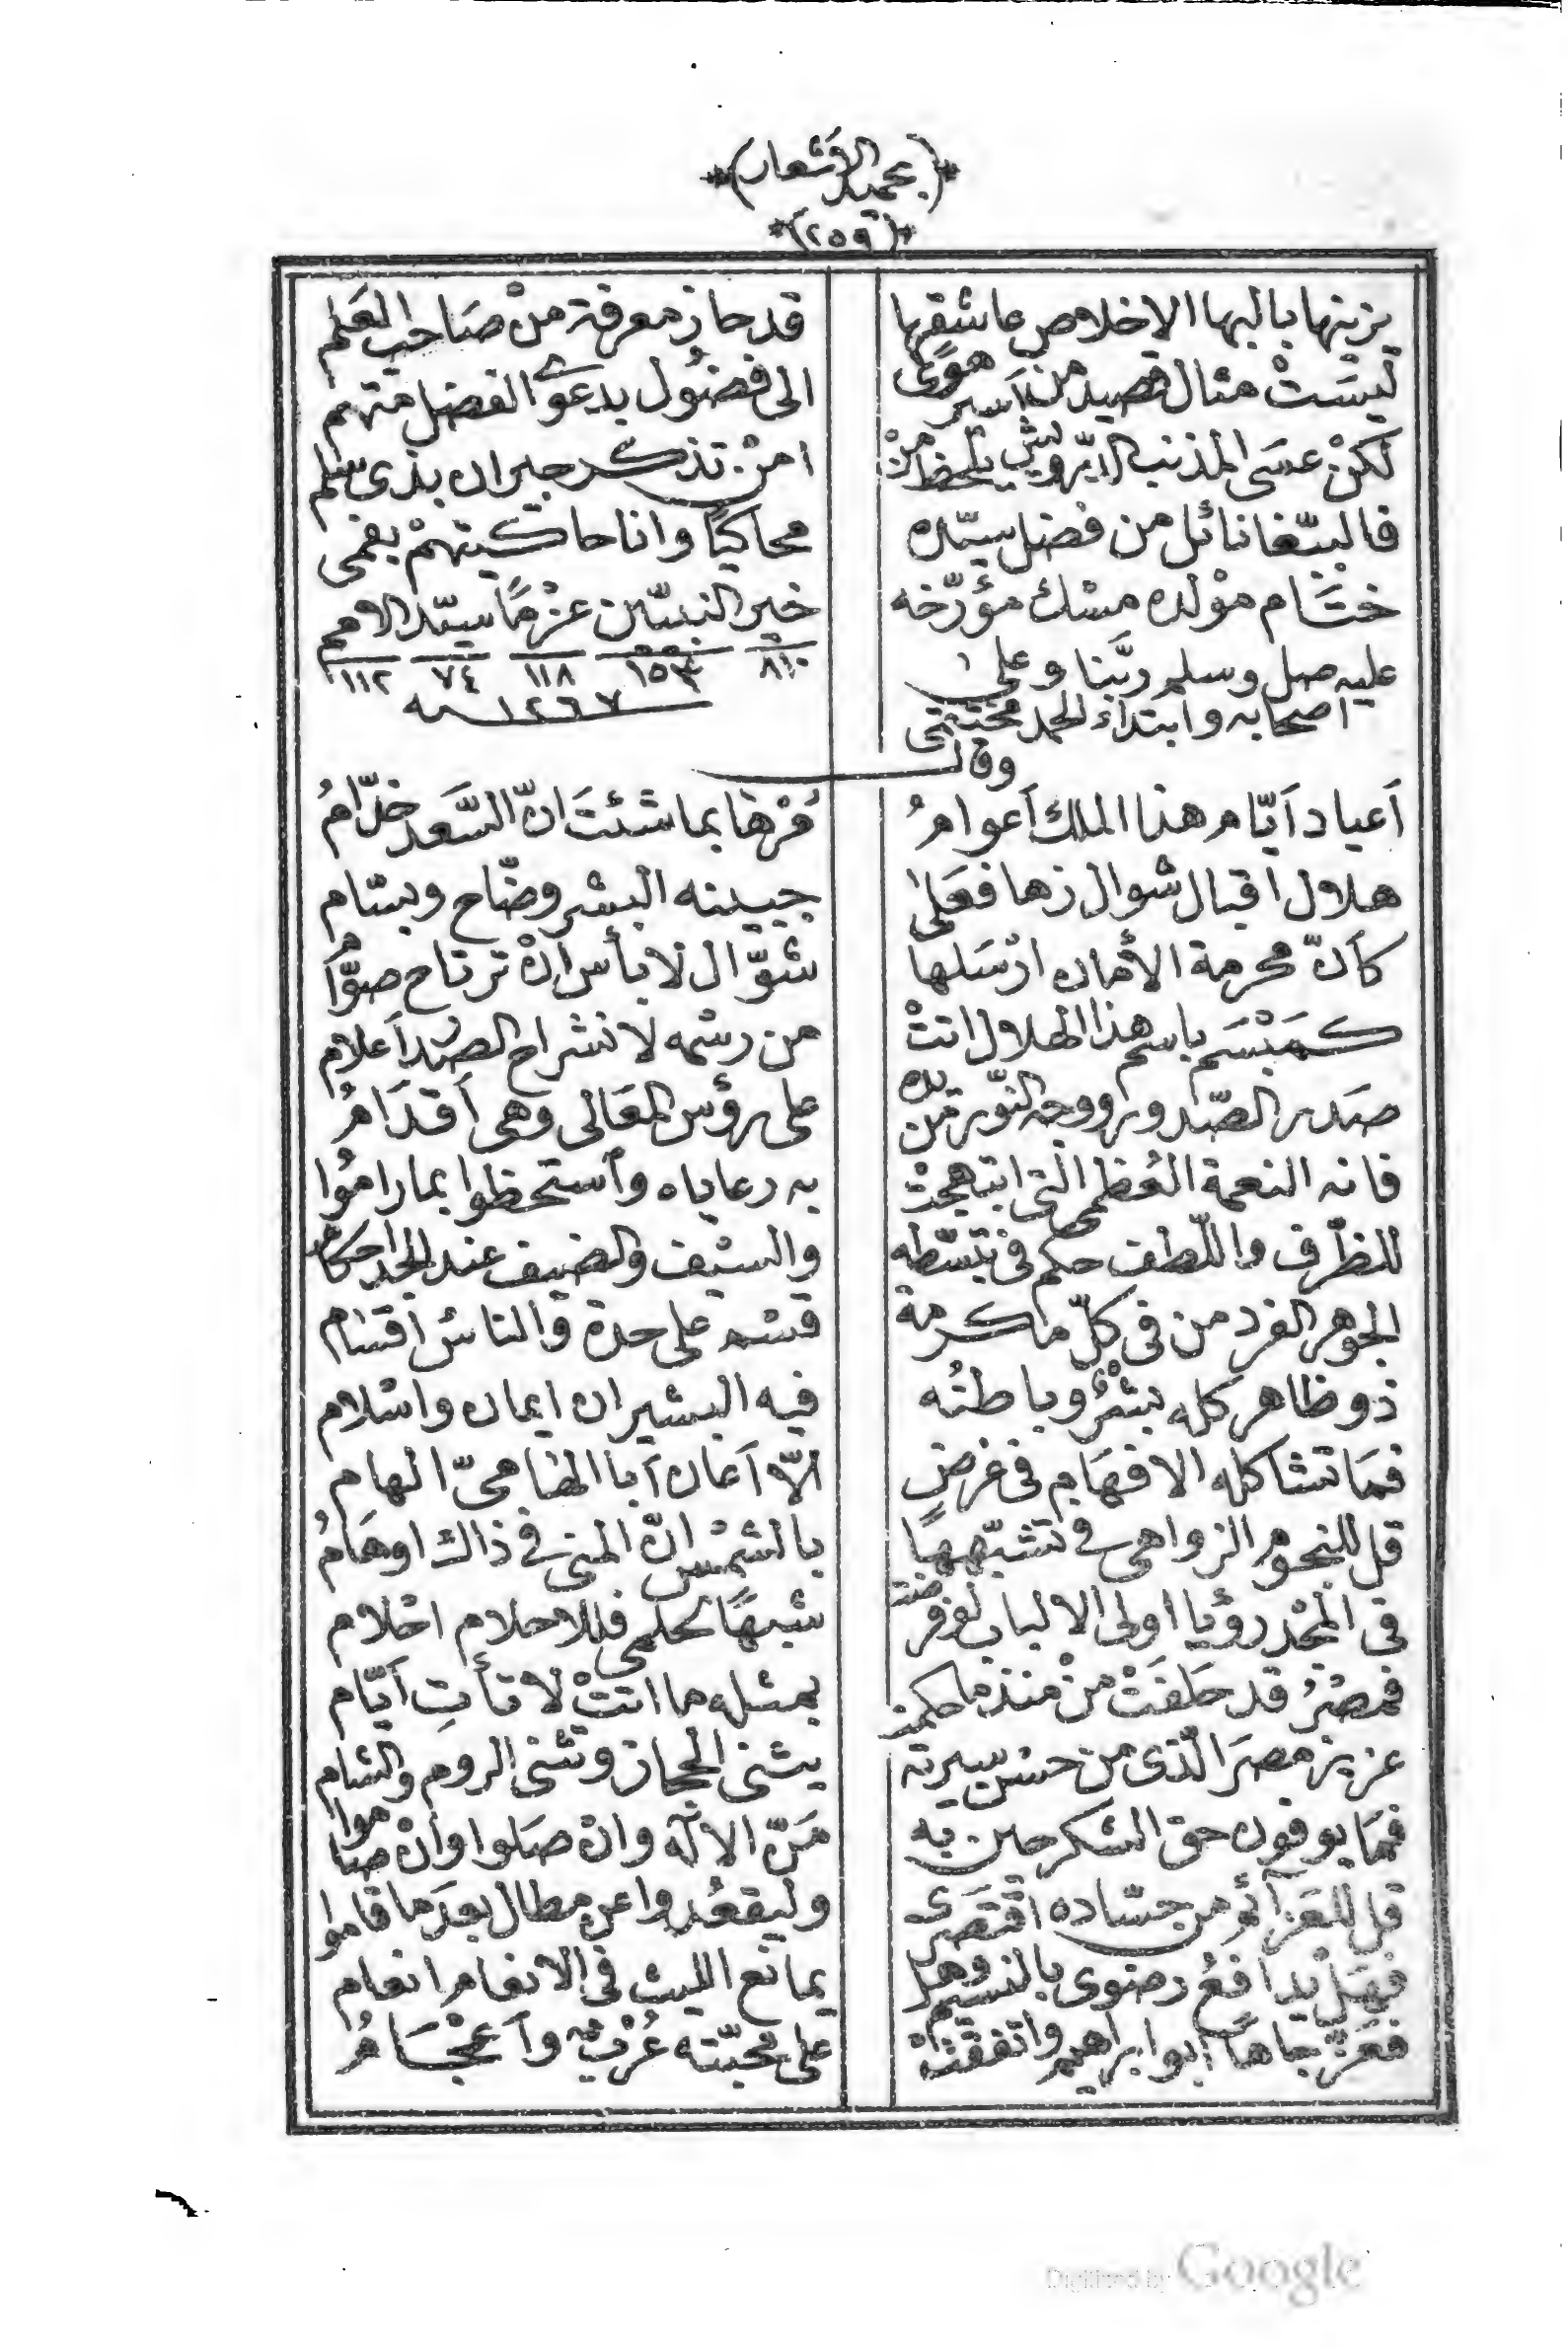 (بحميد الأشعار)
(٢٥٩)
يزينها بالبها الاخلاص عاشقها
قد حاز معرفة منْ صَاحب العَلم
ليْسَتْ مثال قصيد من أسير هوًى
الى فضُول بدعوى الفضل متهم
لكنْ عسَى المذنب الدرويش يلحظ من
امنْ تذكر جيران بذى سلم
فالببّغا نائل من فضل سيّده
محاكيًا وانا حاكيتهمْ بفمى
ختَام موْلده مسْك مؤرّخه
خير النبيّين عزْمًا سيّد الامم
٨١٠ ١٥٣ ١١٨ ٧٤ ١١٢
١٢٦٧ سنه
عليه صل وسلم ربَّنا وعلى
اصحابه وابتداء الحمد مختتمى
وقال
أعياد أيّام هذا الملك أعوامُ
مُرْها بما شئتَ انّ السَّعد خدّامُ
هلال اقبال شوال زها فعَلى
جبينه البشر وضّاح وبسّام
كأنّ محرمة الأمان ارْسَلها
شوّال لا بأس انْ ترتاح صوّام
كمَبْسَم باسم هذا الهلال اتتْ
من رسْمه لانشراح الصدْر أعلام
صَدر الصّدور ووجه النّور من يده
على رؤس المعَالى وهى أقدَامُ
فانه النعمة العُظمى التى ابتهجتْ
به رعاياه وأستحظوا بما رامُوا
للظّرف واللّطف حكم فى تبسّطه
والسيْف والضيف عند الجد احكام
الجوهر الفرد من فى كلّ مكرمة
قسْم على حدة والناسُ اقسَام
ذو ظاهر كله بشْرٌ وباطنُه
فيه البشيران ايمان واسْلام
فمَا تشاكله الافهَام فى غرضٍ
الاّ أعان أبا الهَامىّ الهامِ
قل للنجوم الزواهى فى تشبّهها
بالشمْس انّ المنى فى ذاك اوهَامُ
فى المجْد رؤيا اولى الالباب لو فرضت
شبهًا لحلمى فللاحلام احْلام
فمصْرُ قد حَلفَتْ منْ منذ ما حكمت
بمثله ما اتتْ لا تأتِ أيّام
عزيز مصرَ الّذى من حسْن سيرته
يثنى الحجاز وتثنى الروم والشام
فمَا يوفون حق الشكر حين به
مَنّ الالَه وانْ صَلوا وانْ صَاموا
قل للعَزآئم من حسّاده اقتصَرى
وليقعُدوا عن مطال بعدَ ما قاموا
فهَل يدافعُ رضوى بالنسيم وهل
يمانع الليث فى الانعام انعام
فعَزّ جاهًا أبو ابراهيم واتفقتْ
على محبّته عُرْبٌ وأعجْامُ
Digitized by Google